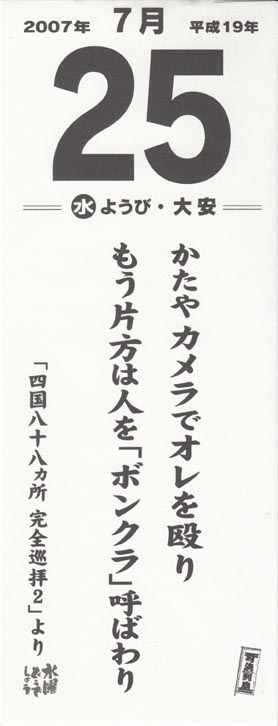 2007年 7月 平成19年
25
水 ようび・大安
かたや カメラでオレを殴り
もう片方は人を「ボンクラ」呼ばわり
「四国八十八ヵ所 完全巡拝2」より
水曜
どうで
しょう